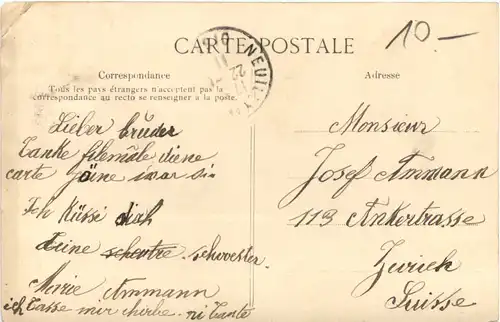 10.—
CARTE POSTALE
Correspondance
Tous les pays étrangers n'acceptent pas la
correspondance au recto se renseigner à la poste.
Adresse
NEUILLY
22
Lieber bruder
Tanke filemâle diene
carte Jäne swar sie
Ich Küsse dich
Deine schwester
Marie Ammann
ich Lasse mir
Monsieur
Josef Ammann
113 Ankertrasse
Zurich
Suisse